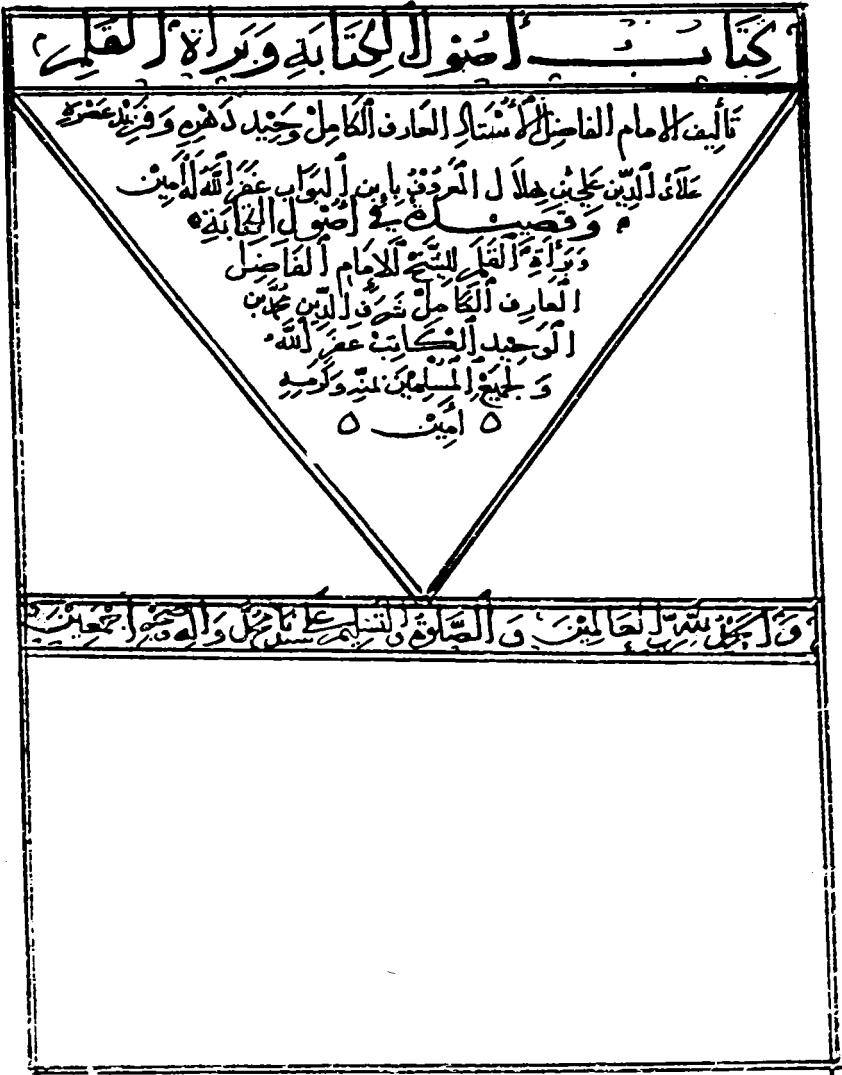 كِتَابُ أُصُولِ الكِتَابَةِ وَبَرَاةِ القَلَمِ
تَألِيف الامام الفاضِل الأُسْتَاذِ العَارف الكَامِلْ وَحِيْد دَهْرِهِ وَفَرِيْد عَصْرِهِ
عَلَائ الدِّين عَلِي بْن هِلَال المَعروُفْ بابن البَوَاب غفَر اللَّه لهُ اَمِيْن
وَقصَيْدة فِي أُصُول الكِتَابَةِ
وَبَرَاة القَلَمِ للشَّيْخِ الامَام الفَاضِل
العَارِف الكَامِلْ شَرَف الدِّين مُحَمَّد بْن
الوَحِيد الكَاتِبْ غفَر اللَّه
وَلجَمِيْع المُسْلِمِيْن بمَنّهِ وَكَرَمِهِ
٥ اَمِيْن ٥
وَالحَمْدُ لِلّهِ رَبِّ العَالَمِيْنَ وَالصَّلوةُ وَالتسْلِيْم عَلَى سَيِّدِنَا مُحَمَّد وَآلِهِ وَصَحْبِهِ اَجْمَعِيْن